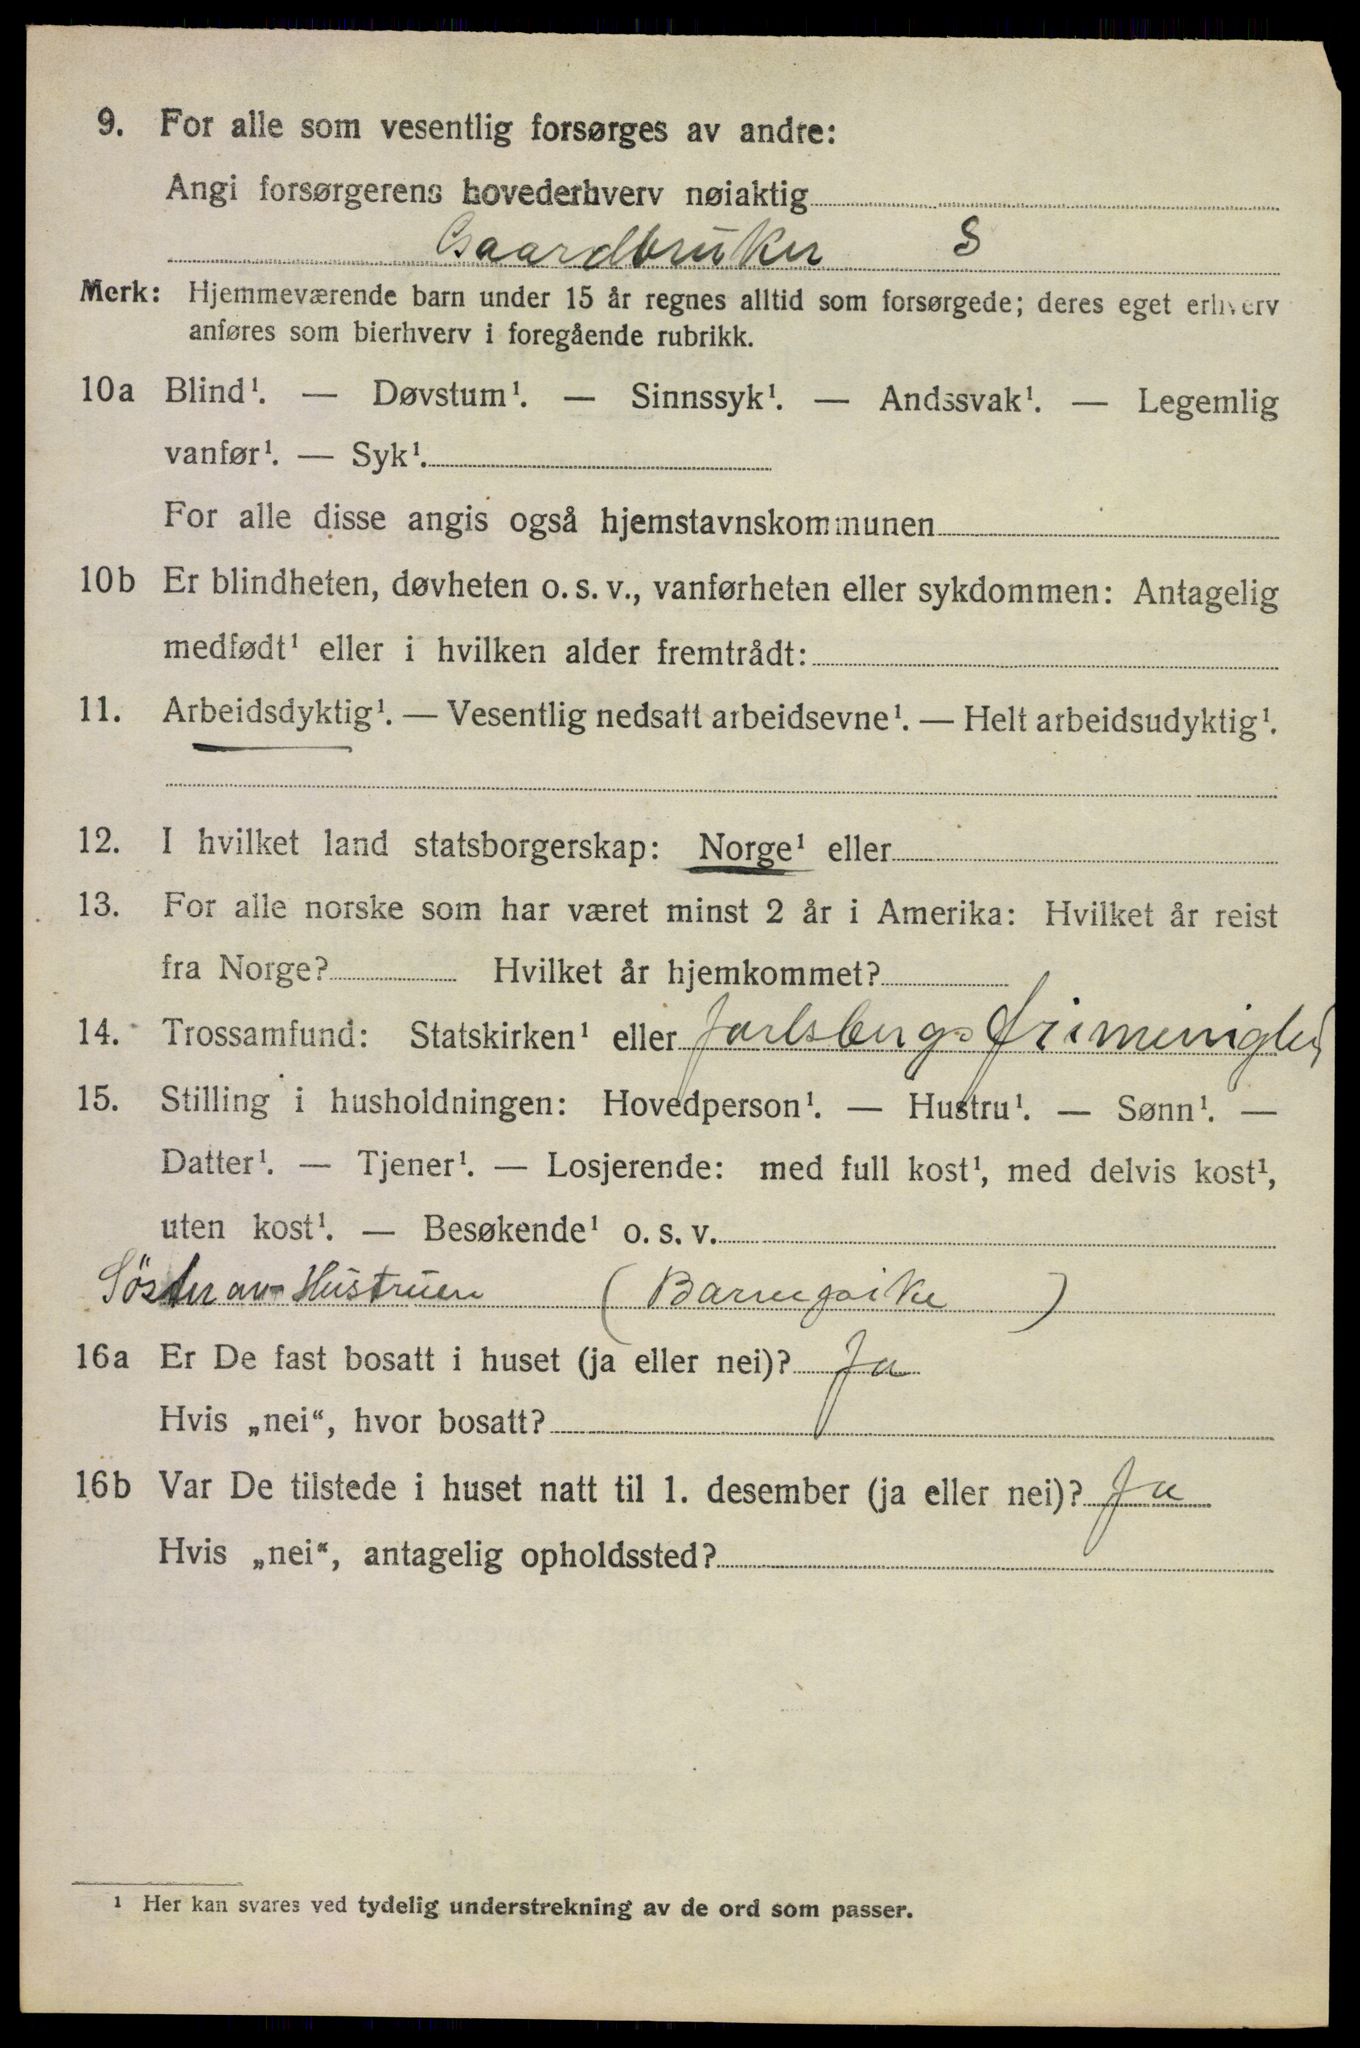 9. For alle som vesentlig forsørges av andre:
Angi forsørgerens hovederhverv nøiaktig
Gaardbruker S
Merk: Hjemmeværende barn under 15 år regnes alltid som forsørgede; deres eget erhverv
anføres som bierhverv i foregående rubrikk.
10a Blind¹. — Døvstum¹. — Sinnssyk¹. — Andssvak¹. — Legemlig
vanfør¹. — Syk¹.
For alle disse angis også hjemstavnskommunen
10b Er blindheten, døvheten o. s. v., vanførheten eller sykdommen: Antagelig
medfødt¹ eller i hvilken alder fremtrådt:
11. Arbeidsdyktig¹. — Vesentlig nedsatt arbeidsevne¹. — Helt arbeidsudyktig¹.
12. I hvilket land statsborgerskap: Norge¹ eller
13. For alle norske som har været minst 2 år i Amerika: Hvilket år reist
fra Norge? Hvilket år hjemkommet?
14. Trossamfund: Statskirken¹ eller Jarlsbergs frimenighed
15. Stilling i husholdningen: Hovedperson¹. — Hustru¹. — Sønn¹. —
Datter¹. — Tjener¹. — Losjerende: med full kost¹, med delvis kost¹,
uten kost¹. — Besøkende¹ o. s. v.
Söster av Hustruen (Barnepike)
16a Er De fast bosatt i huset (ja eller nei)? Ja
Hvis „nei“, hvor bosatt?
16b Var De tilstede i huset natt til 1. desember (ja eller nei)? Ja
Hvis „nei“, antagelig opholdssted?
¹ Her kan svares ved tydelig understrekning av de ord som passer.